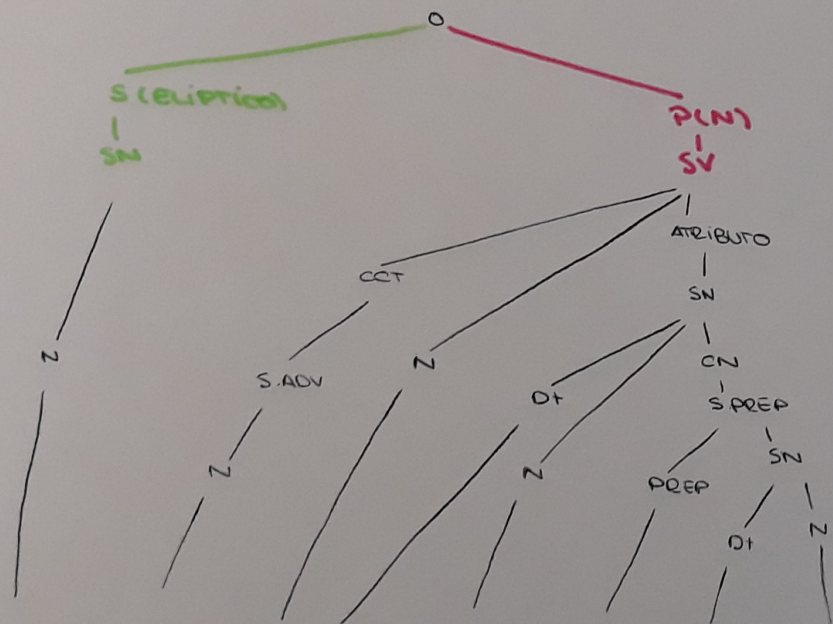 O
S (ELIPTICO)
SN
P(N)
SV
ATRIBUTO
SN
CCT
N
S.ADV
N
N
Dt
N
CN
S.PREP
PREP
SN
Dt
N